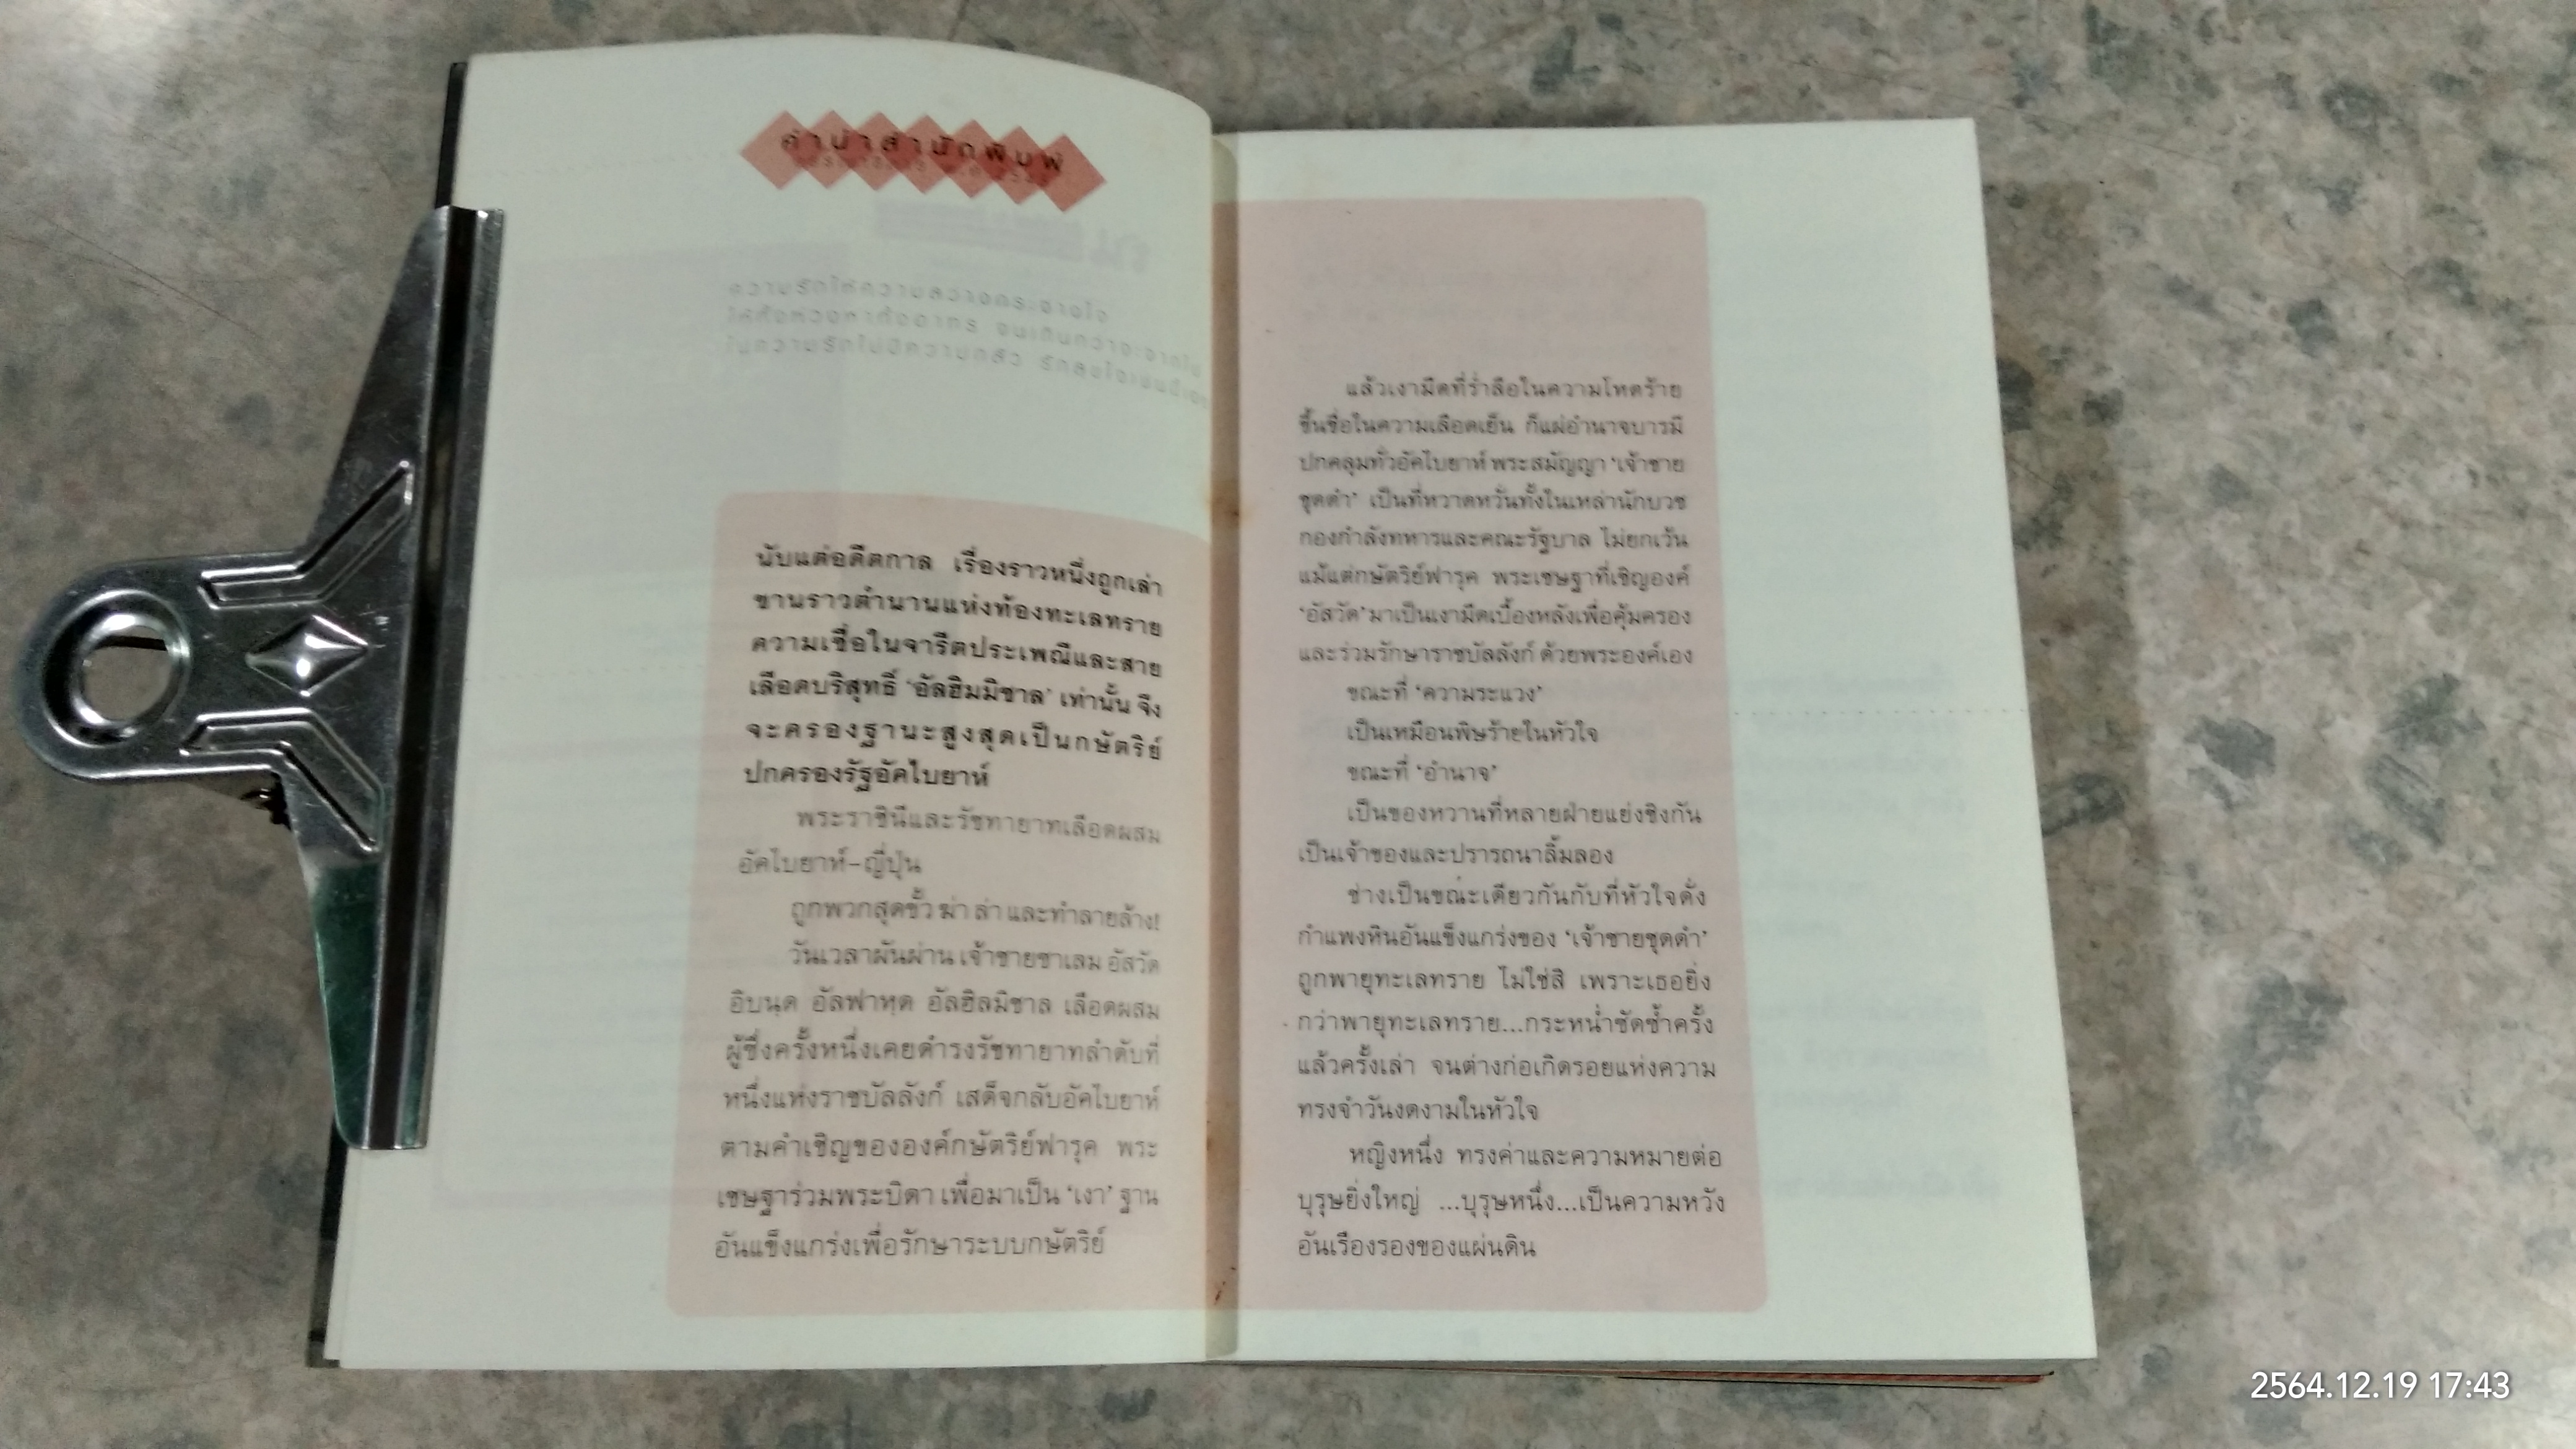 คำนำสำนักพิมพ์
นับแต่อดีตกาล เรื่องราวหนึ่งถูกเล่า
ขานราวตำนานแห่งท้องทะเลทราย
ความเชื่อในจารีตประเพณีและสาย
เลือดบริสุทธิ์ ‘อัลฮิมมิชาล’ เท่านั้น จึง
จะครองฐานะสูงสุดเป็นกษัตริย์
ปกครองรัฐอัคไบยาห์
พระราชินีและรัชทายาทเลือดผสม
อัคไบยาห์-ญี่ปุ่น
ถูกพวกสุดขั้ว ฆ่า ล่า และทำลายล้าง!
วันเวลาผันผ่าน เจ้าชายชาเลม อัสวัด
อิบนุด อัลฟาหุด อัลฮิลมิชาล เลือดผสม
ผู้ซึ่งครั้งหนึ่งเคยดำรงรัชทายาทลำดับที่
หนึ่งแห่งราชบัลลังก์ เสด็จกลับอัคไบยาห์
ตามคำเชิญขององค์กษัตริย์ฟารุค พระ
เชษฐาร่วมพระบิดา เพื่อมาเป็น ‘เงา’ ฐาน
อันแข็งแกร่งเพื่อรักษาระบบกษัตริย์
แล้วเงามืดที่ร่ำลือในความโหดร้าย
ขึ้นชื่อในความเลือดเย็น ก็แผ่อำนาจบารมี
ปกคลุมทั่วอัคไบยาห์ พระสมัญญา ‘เจ้าชาย
ชุดดำ’ เป็นที่หวาดหวั่นทั้งในเหล่านักบวช
กองกำลังทหารและคณะรัฐบาล ไม่ยกเว้น
แม้แต่กษัตริย์ฟารุค พระเชษฐาที่เชิญองค์
‘อัสวัด’ มาเป็นเงามืดเบื้องหลังเพื่อคุ้มครอง
และร่วมรักษาราชบัลลังก์ ด้วยพระองค์เอง
ขณะที่ ‘ความระแวง’
เป็นเหมือนพิษร้ายในหัวใจ
ขณะที่ ‘อำนาจ’
เป็นของหวานที่หลายฝ่ายแย่งชิงกัน
เป็นเจ้าของและปรารถนาลิ้มลอง
ช่างเป็นขณะเดียวกันกับที่หัวใจดั่ง
กำแพงหินอันแข็งแกร่งของ ‘เจ้าชายชุดดำ’
ถูกพายุทะเลทราย ไม่ใช่สิ เพราะเธอยิ่ง
กว่าพายุทะเลทราย...กระหน่ำซัดซ้ำครั้ง
แล้วครั้งเล่า จนต่างก่อเกิดรอยแห่งความ
ทรงจำวันงดงามในหัวใจ
หญิงหนึ่ง ทรงค่าและความหมายต่อ
บุรุษยิ่งใหญ่ ...บุรุษหนึ่ง...เป็นความหวัง
อันเรืองรองของแผ่นดิน
2564.12.19 17:43